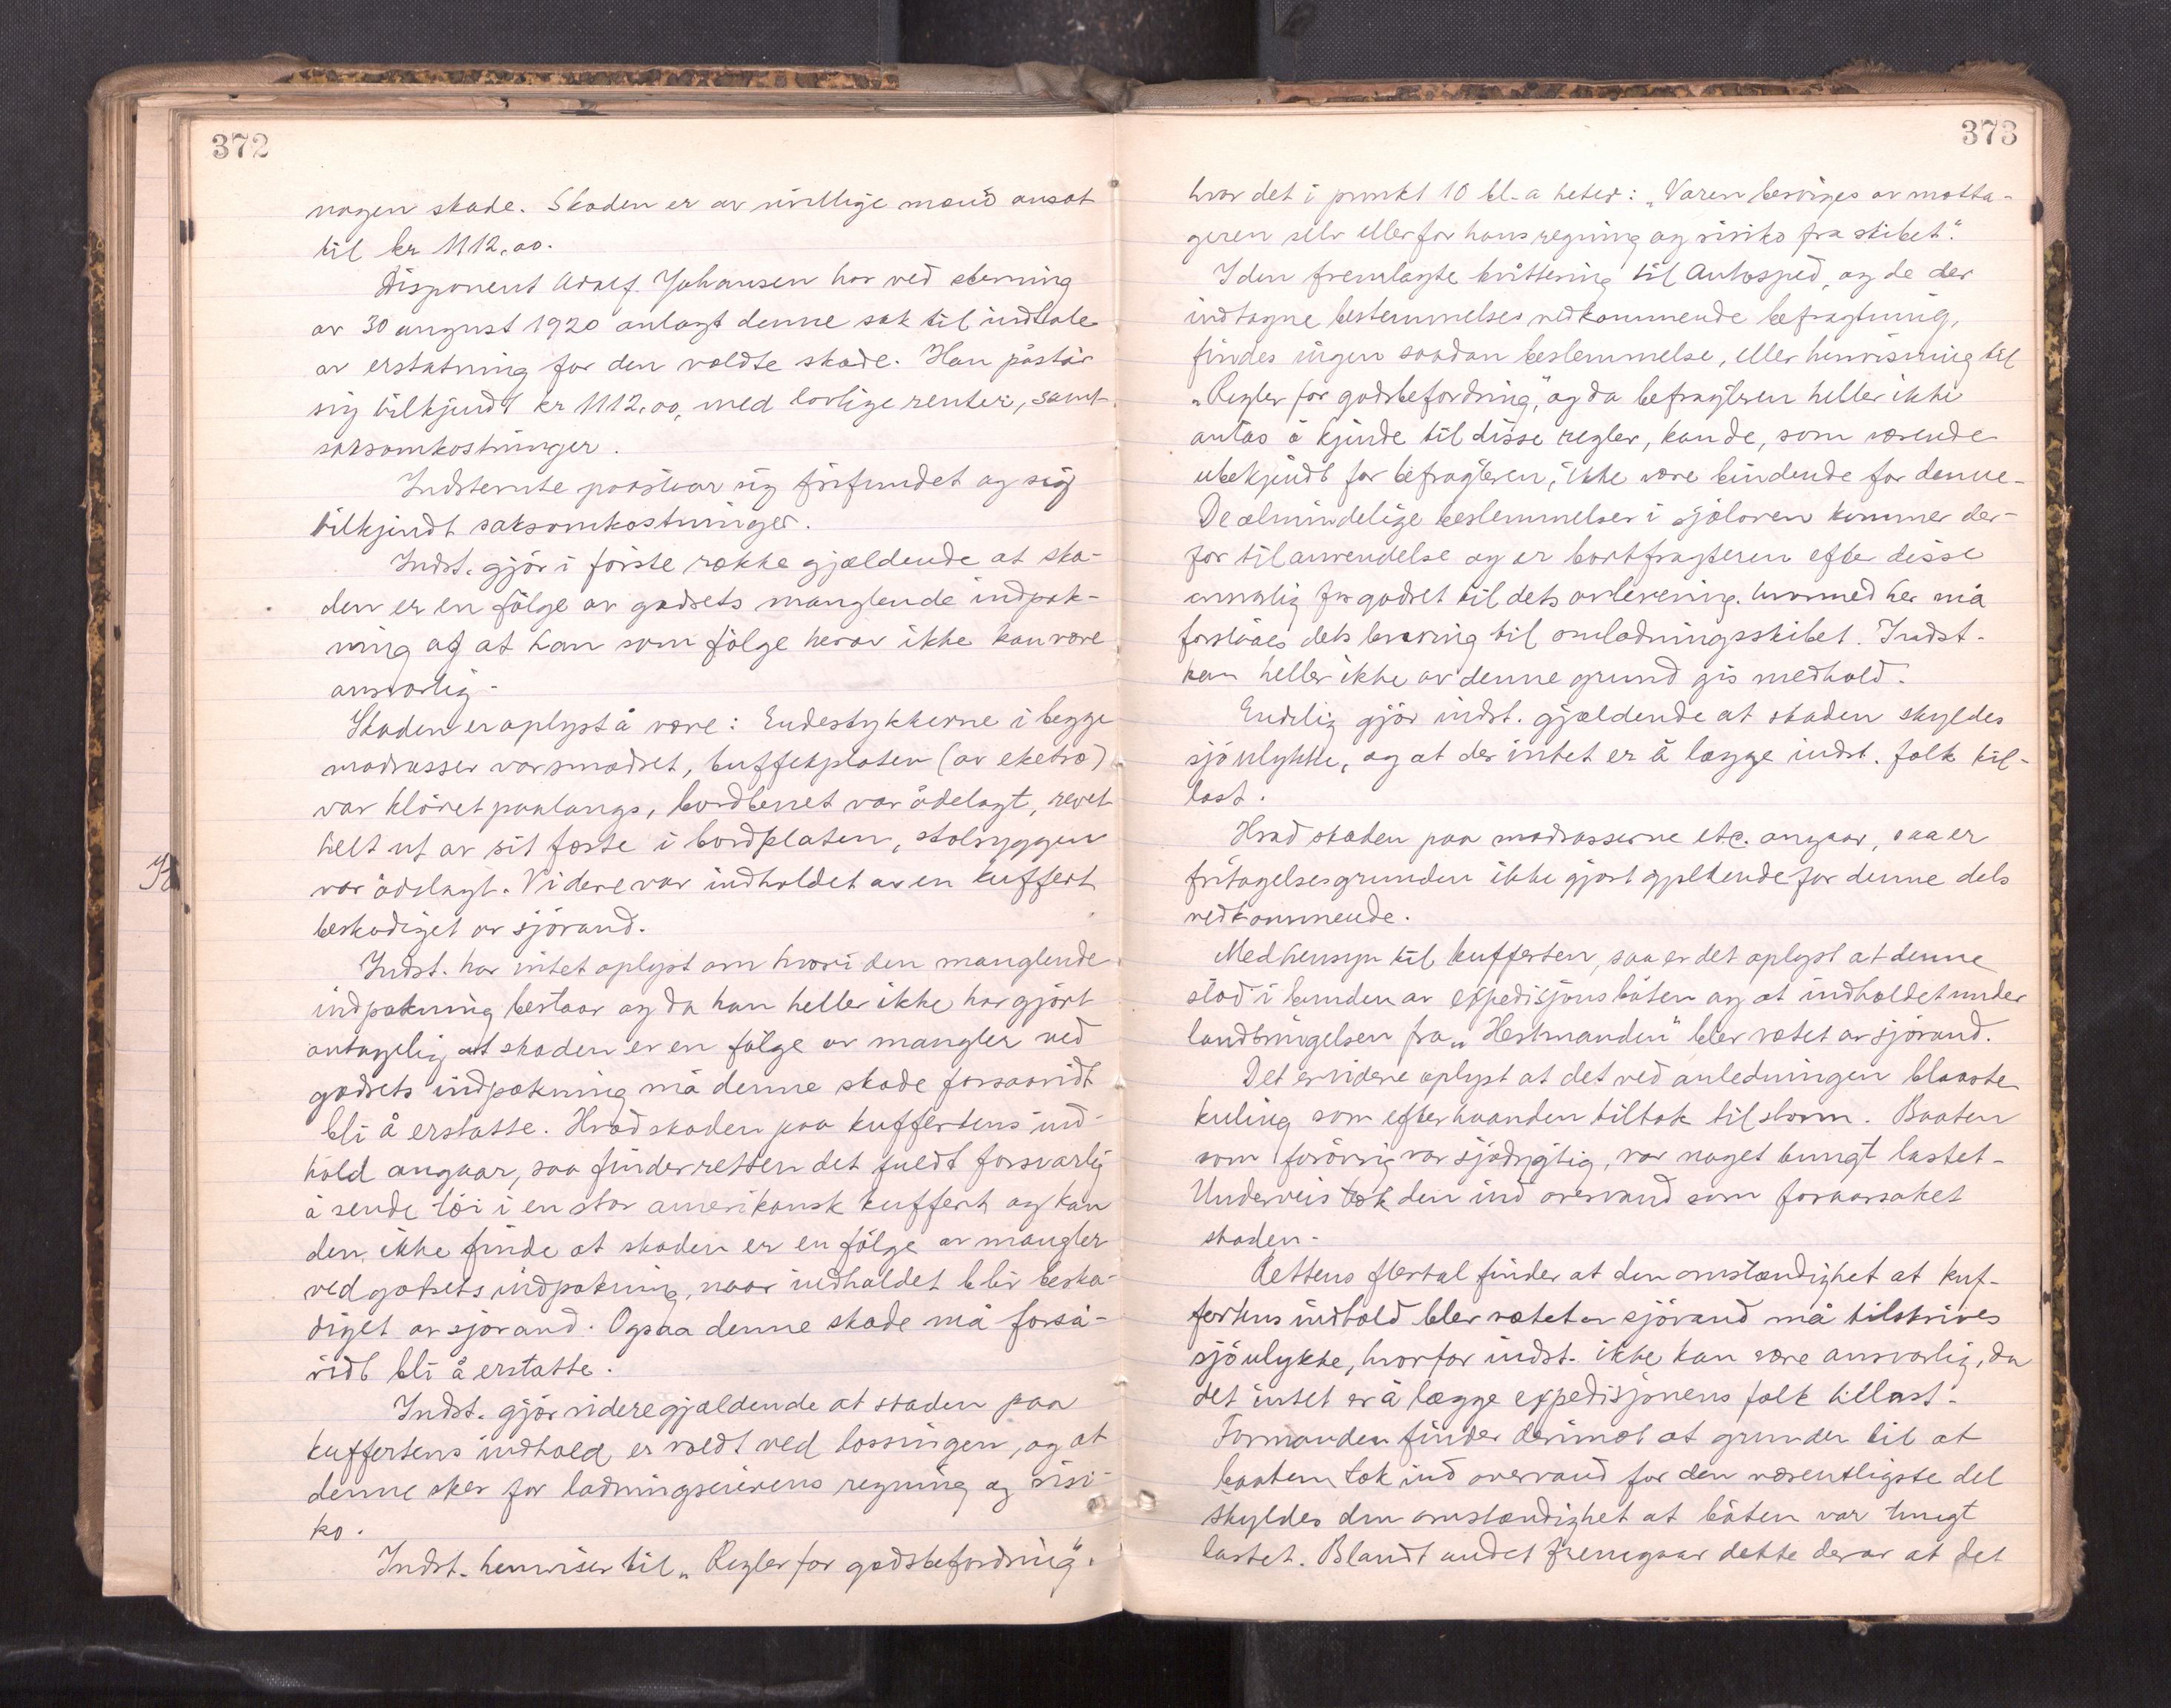 372
nogen skade. Skaden er av uvillige mænd ansat
til kr 1112,00.
Disponent Adolf Johansen har ved stevning
av 30 august 1920 anlagt denne sak til indtale
av erstatning for den voldte skade. Han påstår
sig tilkjendt kr 1112,00, med lovlige renter, samt
saksomkostninger.
Indstevnte paastaar sig frifundet og sig
tilkjendt saksomkostninger.
Indst. gjör i förste række gjældende at ska-
den er en fölge av godsets manglende indpak-
ning og at han som fölge herav ikke kan være
ansvarlig.
Skaden er oplyst å være: Endestykkerne i begge
madrasser var smadret, buffetplaten (av eketræ)
var klöret paalangs, bordbenet var ödelagt, revet
helt ut av sit fæste i bordplaten, stolryggen
var ödelagt. Videre var indholdet av en kuffert
beskadiget av sjövand.
Indst. har intet oplyst om hvori den manglende
indpakning bestaar og da han heller ikke har gjort
antagelig at skaden er en fölge av mangler ved
godsets indpakning må denne skade forsaavidt
bli å erstatte. Hvad skaden paa kuffertens ind-
hold angaar, saa finder retten det fuldt forsvarlig
å sende töi i en stor amerikansk kuffert og kan
den ikke finde at skaden er en fölge av mangler
ved godsets indpakning, naar indholdet blir beska-
diget av sjövand. Ogsaa denne skade må forså-
vidt bli å erstatte.
Indst. gjör videre gjældende at skaden paa
kuffertens indhold er voldt ved lossningen, og at
denne sker for ladningseierens regning og risi-
ko.
Indst. henviser til „Regler for godsbefordring".
373
hvor det i punkt 10 bl. a heter: „Varen besörges av motta-
geren selv eller for hans regning og risiko fra skibet".
I den fremlagte kvittering til Autosped, og de der
indtagne bestemmelser vedkommende befragtning,
findes ingen saadan bestemmelse, eller henvisning til
„Regler for godsbefordring", og da befragteren heller ikke
antas å kjende til disse regler, kan de, som værende
ubekjendt for befragteren, ikke være bindende for denne.
De almindelige bestemmelser i sjöloven kommer der-
for til anvendelse og er bortfragteren efter disse
ansvarlig for godset til dets avlevering. hvormed her må
forståes dets levering til omladningsskibet. Indst.
kan heller ikke av denne grund gis medhold.
Endelig gjör indst. gjældende at skaden skyldes
sjöulykke, og at der intet er å lægge indst. folk til-
last.
Hvad skaden paa madrasserne etc. angaar, saa er
fritagelsesgrunden ikke gjort gjældende for denne dels
vedkommende.
Med hensyn til kufferten, saa er det oplyst at denne
stod i bunden av expedisjonsbåten og at indholdet under
landbringelsen fra „Hestmanden" blev vætet av sjövand.
Det er videre oplyst at det ved anledningen blaaste
kuling som efterhaanden tiltok til storm. Baaten
som forövrig var sjödygtig, var noget tungt lastet.
Underveis tok den ind overvand som foraarsaket
skaden.
Rettens flertal finder at den omstændighet at kuf-
fertens indhold blev vætet av sjövand må tilskrives
sjöulykke, hvorfor indst. ikke kan være ansvarlig, da
det intet er å lægge expedisjonens folk tillast.
Formanden finder derimot at grunden til at
baaten tok ind overvand for den væsentligste del
skyldes den omstændighet at båten var tungt
lastet. Blandt andet fremgaar dette derav at det